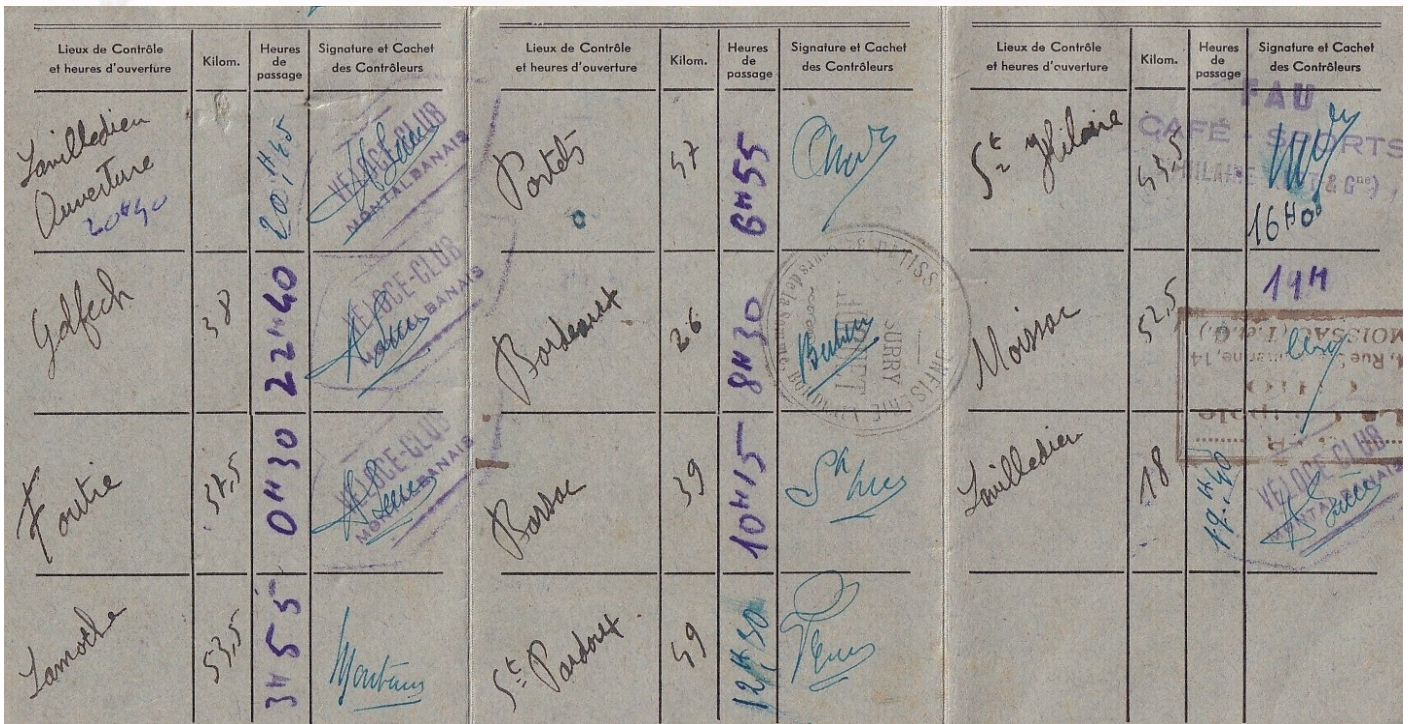 Lieux de Contrôle
et heures d'ouverture
Kilom.
Heures
de
passage
Signature et Cachet
des Contrôleurs
Lavilledieu
Ouverture
20H40
20H45
VELOCE-CLUB
MONTALBANAIS
Golfech
38
22H40
VELOCE-CLUB
MONTALBANAIS
Fourtic
37,5
0H30
VELOCE-CLUB
MONTALBANAIS
Lamothe
53,5
3H55
Lieux de Contrôle
et heures d'ouverture
Kilom.
Heures
de
passage
Signature et Cachet
des Contrôleurs
Portets
47
6H55
Bordeaux
26
8H30
SURRY
Barsac
39
10H15
St Pardoux
49
12H30
Lieux de Contrôle
et heures d'ouverture
Kilom.
Heures
de
passage
Signature et Cachet
des Contrôleurs
St Hilaire
FAU
CAFÉ - SPORTS
16H00
Moissac
52,5
19H
MOISSAC (T.-&-G.)
Lavilledieu
18
19H40
VELOCE-CLUB
MONTALBANAIS